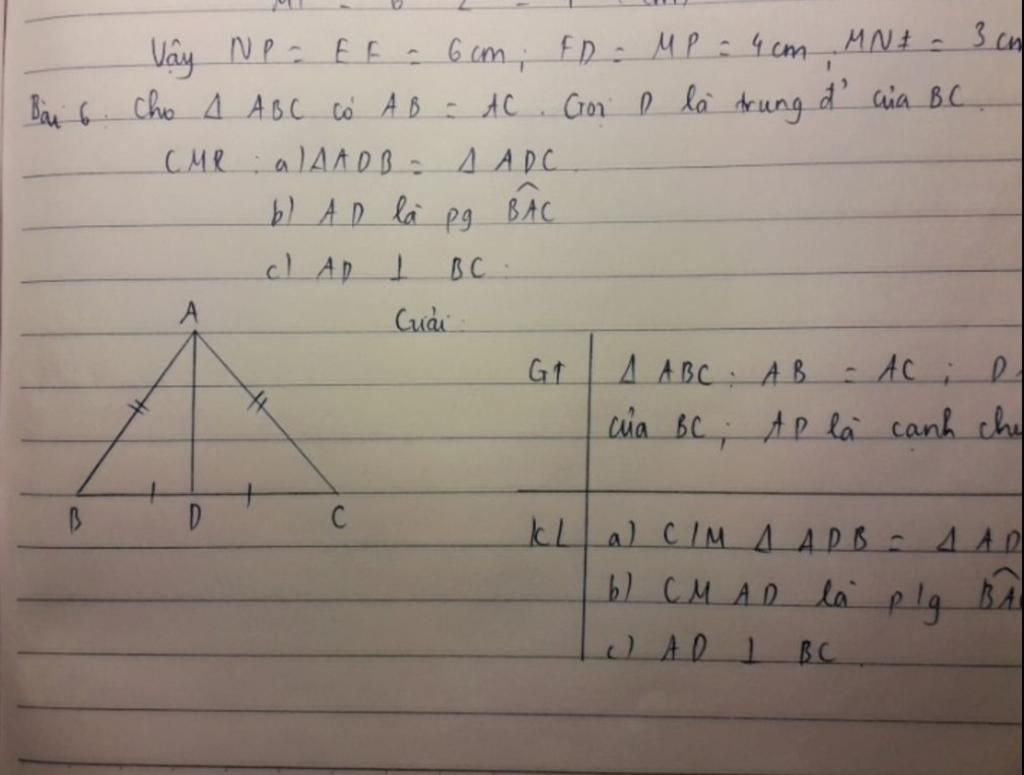 Vậy NP = EF = 6cm; FD = MP = 4cm; MN = 3cm
Bài 6. Cho Δ ABC có AB = AC. Gọi D là trung đ' của BC.
CMR: a) ΔADB = Δ ADC.
b) AD là pg BAC
c) AD ⊥ BC.
A
Giải:
GT
Δ ABC: AB = AC; D
của BC; AD là cạnh
B D C
KL
a) C/M Δ ADB = Δ AD
b) CM AD là p/g BA
c) AD ⊥ BC